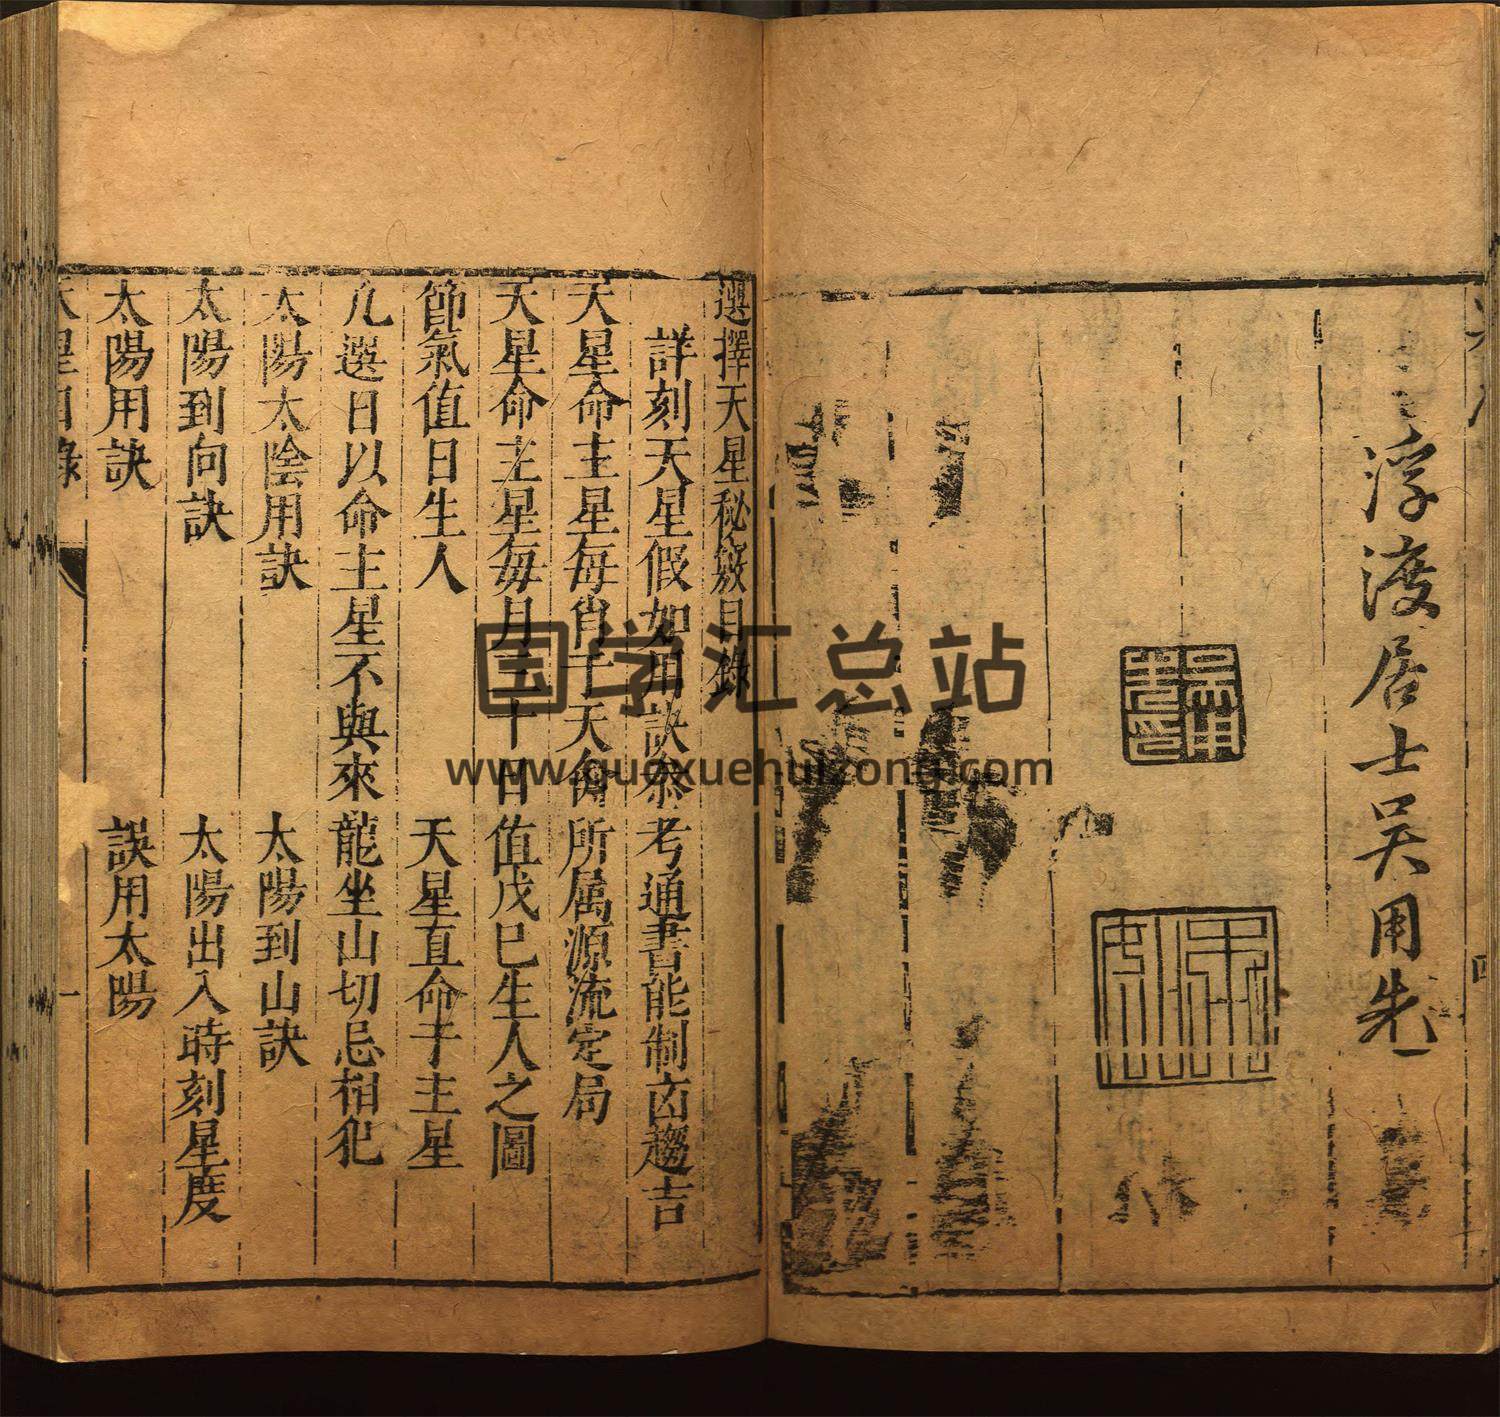 浮渡居士吳用先
選擇天星秘竅目錄
詳刻天星假如用訣叅考通書能制凶趨吉
天星命主星每肖子天禽所属源流定局
天星命主星每月三十日值戊巳生人之圖
節氣值日生人 天星直命子主星
凡選日以命主星不與來龍坐山切忌相犯
太陽太陰用訣 太陽到山訣
太陽到向訣 太陽出入時刻星度
太陽用訣 訣用太陽
天星目錄
一
四
国学汇总站
www.guoxuehuizong.com